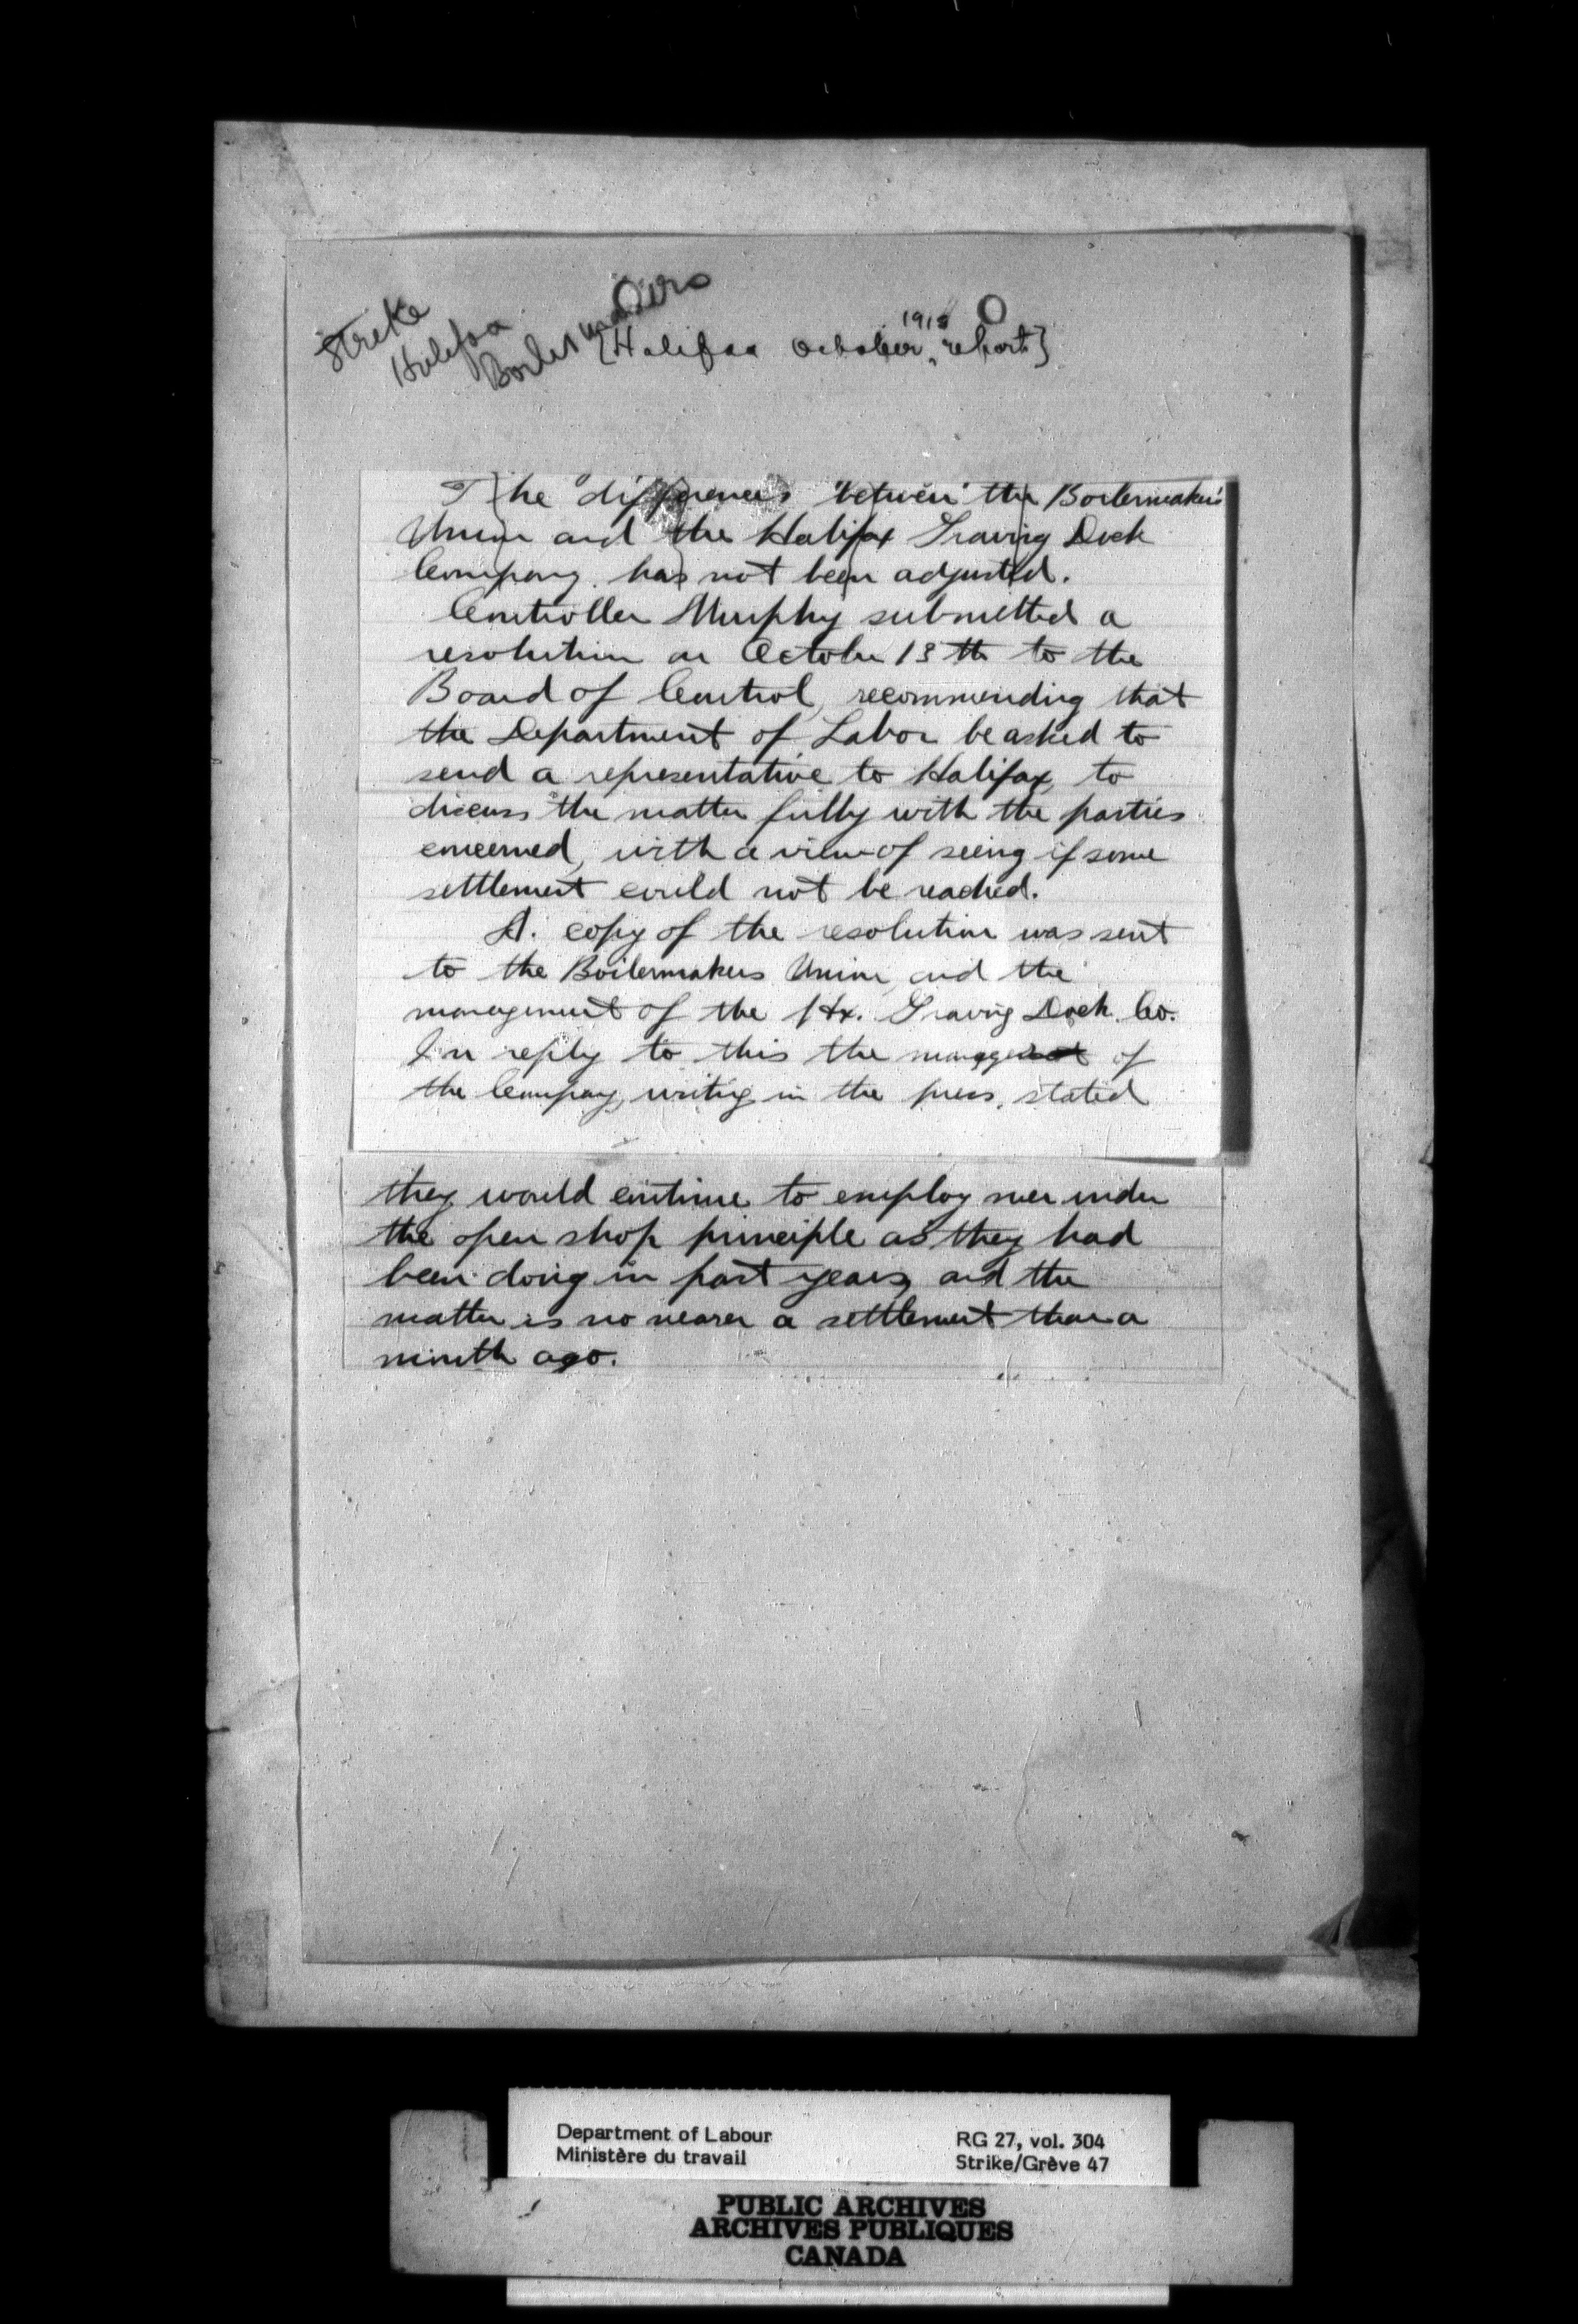 Strike
Halifax
Boilermakers
[Halifax October 1913 report]
The differences between the Boilermaker's
Union and the Halifax Graving Dock
Company has not been adjusted.
Controller Murphy submitted a
resolution on October 13th to the
Board of Control, recommending that
the Department of Labor be asked to
send a representative to Halifax, to
discuss the matter fully with the parties
concerned, with a view of seeing if some
settlement could not be reached.
A. copy of the resolution was sent
to the Boilermakers Union, and the
management of the Hx. Graving Dock Co.
In reply to this the manager of
the Company, writing in the press, stated
they would continue to employ men under
the open shop principle as they had
been doing in past years, and the
matter is no nearer a settlement than a
month ago.
Department of Labour
Ministère du travail
RG 27, vol. 304
Strike/Grève 47
PUBLIC ARCHIVES
ARCHIVES PUBLIQUES
CANADA